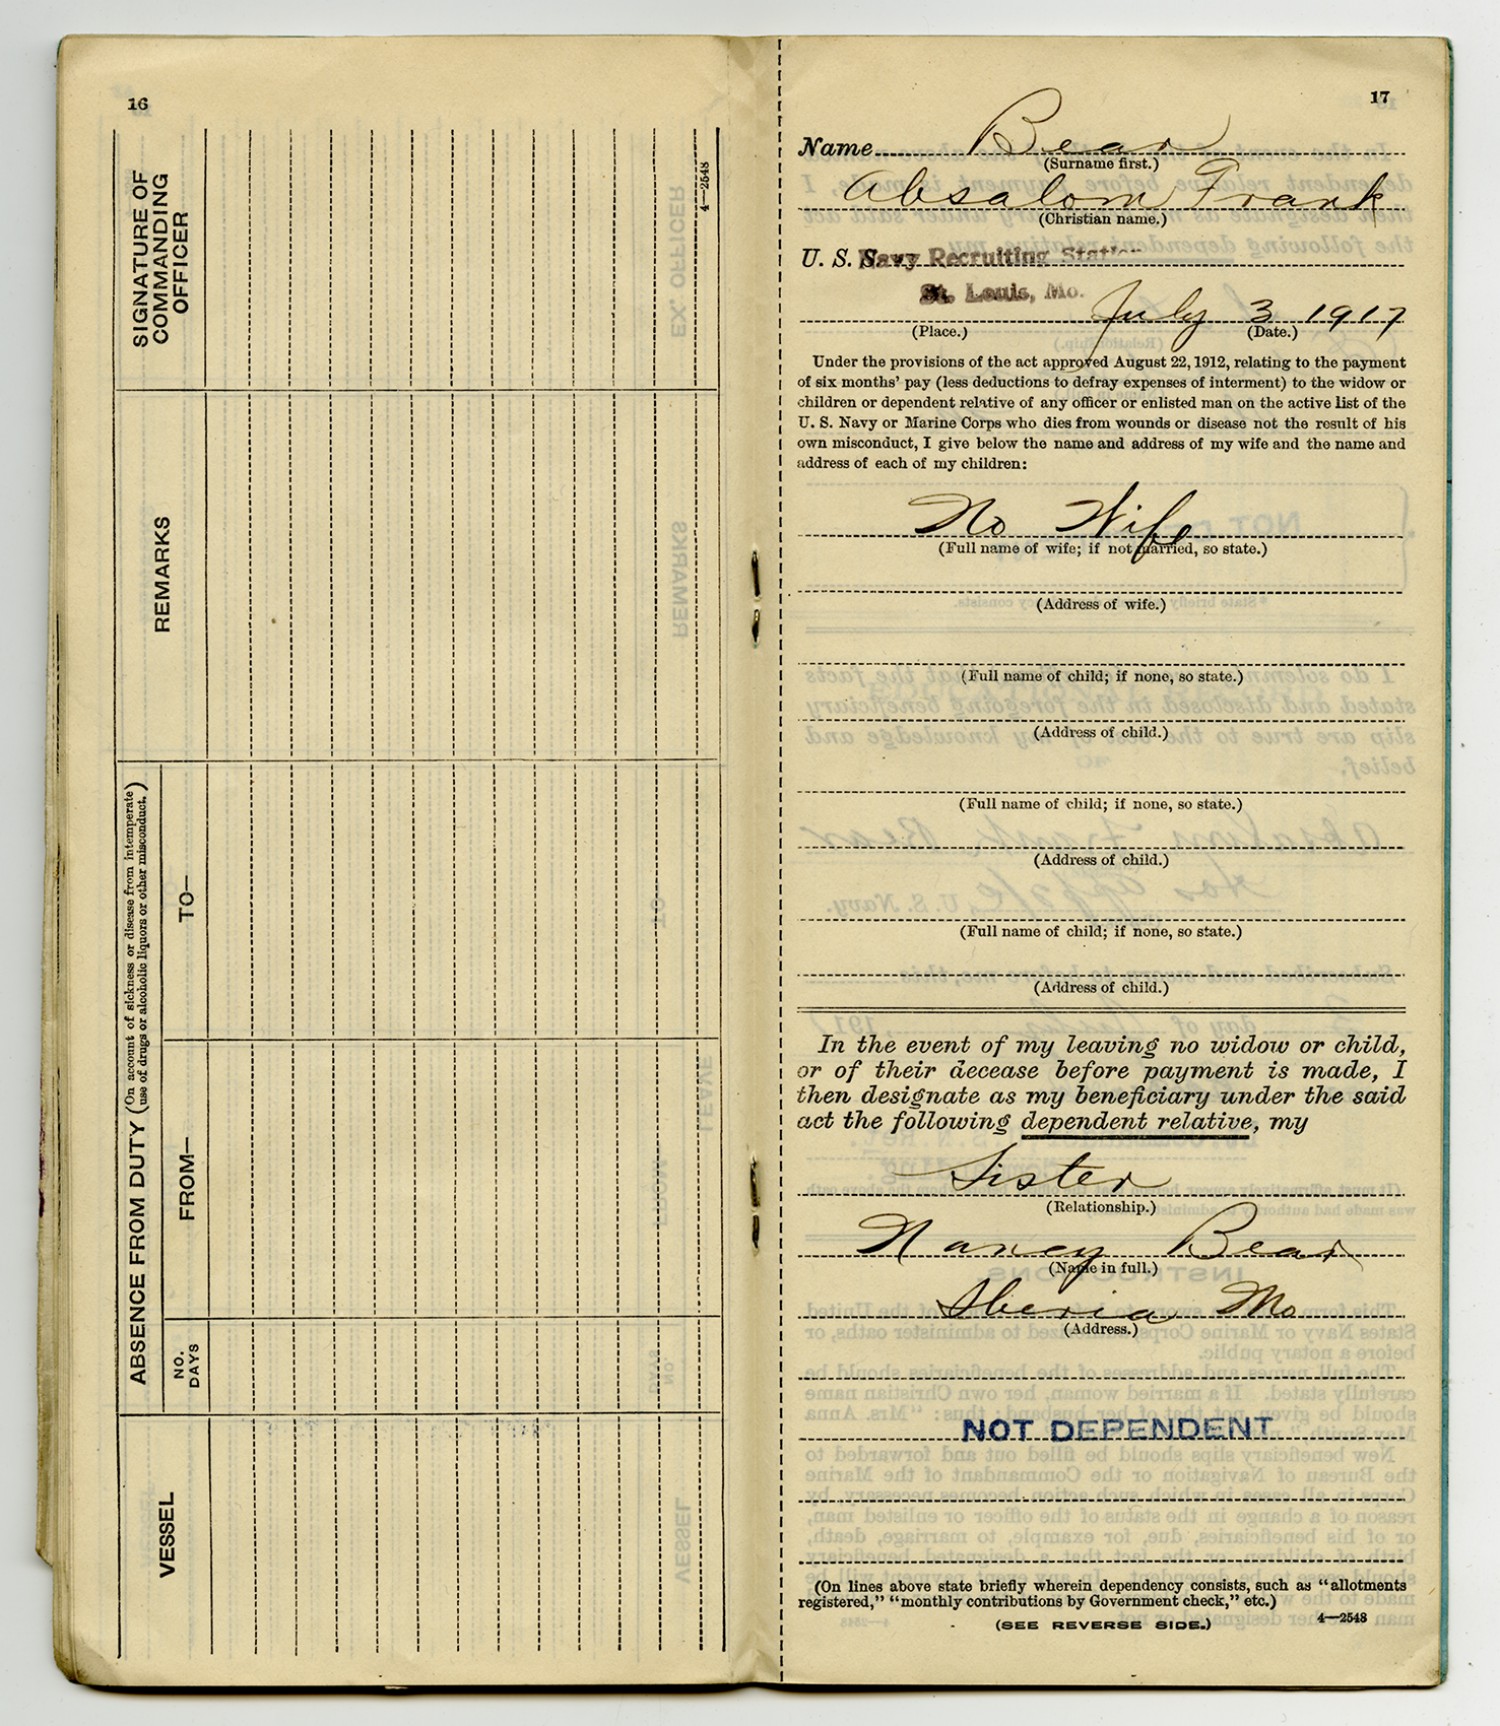 16
SIGNATURE OF
COMMANDING
OFFICER
REMARKS
ABSENCE FROM DUTY (On account of sickness or disease from intemperate
use of drugs or alcoholic liquors or other misconduct.)
TO—
FROM—
NO.
DAYS
VESSEL
4—2548
17
Name Bear
(Surname first.)
Absalom Frank
(Christian name.)
U. S. Navy Recruiting Station
St. Louis, Mo. July 3 1917
(Place.) (Date.)
Under the provisions of the act approved August 22, 1912, relating to the payment
of six months' pay (less deductions to defray expenses of interment) to the widow or
children or dependent relative of any officer or enlisted man on the active list of the
U. S. Navy or Marine Corps who dies from wounds or disease not the result of his
own misconduct, I give below the name and address of my wife and the name and
address of each of my children:
No Wife
(Full name of wife; if not married, so state.)
(Address of wife.)
(Full name of child; if none, so state.)
(Address of child.)
(Full name of child; if none, so state.)
(Address of child.)
(Full name of child; if none, so state.)
(Address of child.)
In the event of my leaving no widow or child,
or of their decease before payment is made, I
then designate as my beneficiary under the said
act the following dependent relative, my
Sister
(Relationship.)
Nancy Bear
(Name in full.)
Iberia Mo
(Address.)
NOT DEPENDENT
(On lines above state briefly wherein dependency consists, such as "allotments
registered," "monthly contributions by Government check," etc.)
(SEE REVERSE SIDE.) 4—2548